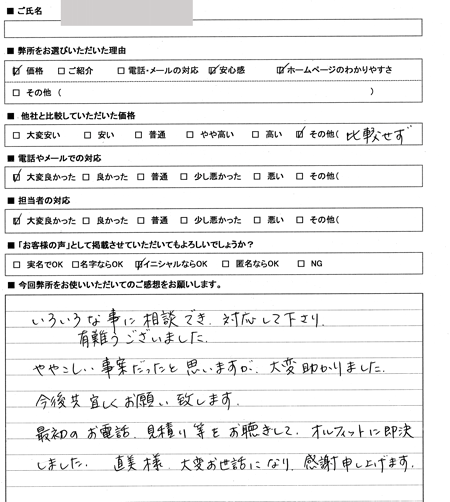 ■ ご氏名
■ 弊所をお選びいただいた理由
☑ 価格 □ ご紹介 □ 電話・メールの対応 ☑ 安心感 ☑ ホームページのわかりやすさ
□ その他 ( )
■ 他社と比較していただいた価格
□ 大変安い □ 安い □ 普通 □ やや高い □ 高い ☑ その他( 比較せず
■ 電話やメールでの対応
☑ 大変良かった □ 良かった □ 普通 □ 少し悪かった □ 悪い □ その他(
■ 担当者の対応
☑ 大変良かった □ 良かった □ 普通 □ 少し悪かった □ 悪い □ その他(
■ 「お客様の声」として掲載させていただいてもよろしいでしょうか?
□ 実名でOK □ 名字ならOK ☑ イニシャルならOK □ 匿名ならOK □ NG
■ 今回弊所をお使いいただいてのご感想をお願いします。
いろいろな事に相談でき、対応して下さり、
有難うございました。
ややこしい事案だったと思いますが、大変助かりました。
今後共宜しくお願い致します。
最初のお電話、見積り等をお聴きして、オルフィットに即決
しました。 直美様、大変お世話になり、感謝申し上げます。